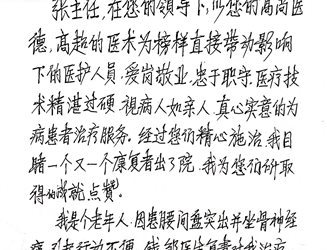 张主任，在您的领导下，以您的高尚医
德，高超的医术为榜样直接带动影响
下的医护人员，爱岗敬业，忠于职守，医疗技
术精湛过硬，视病人如亲人，真心实意的为
病患者治疗服务。经过您们精心施治，我目
睹一个又一个康复者出了院，我为您们所取
得的成就点赞。
我是个老年人，因患腰间盘突出并坐骨神经
痛，引起行动不便，